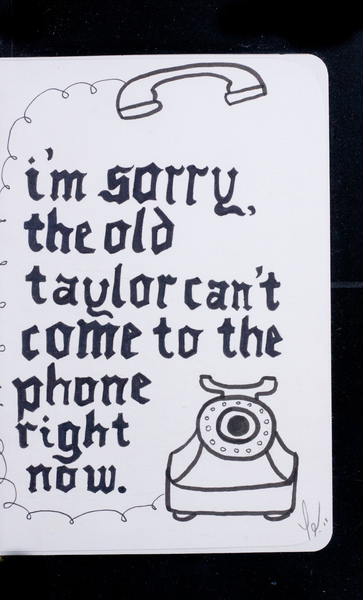 i'm sorry,
the old
taylor can't
come to the
phone
right
now.